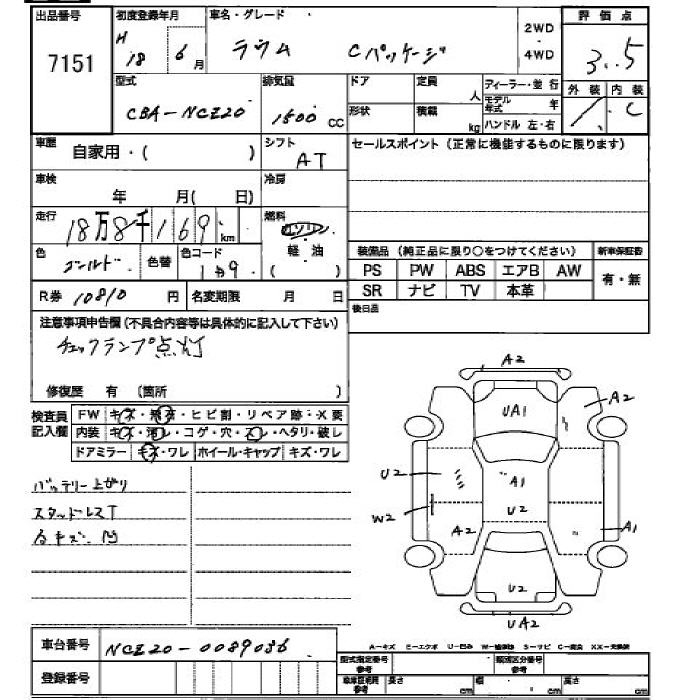 出品番号 初度登録年月 車名・グレード 2WD 評価点
7151 H 18 6月 ラウム Cパッケージ ・ 4WD 3.5
型式 排気量 ドア 定員 人 ディーラー・並行 外装 内装
CBA-NCZ20 1500 CC 形状 積載 kg モデル年式 年 C
ハンドル 左・右
車歴 自家用・( ) シフト AT セールスポイント(正常に機能するものに限ります)
車検 年 月( 日) 冷房
走行 18万8千169 km 燃料 ガソリン
軽油
( )
色 ゴールド 色替 色コード
装備品(純正品に限り○をつけてください) 新車保証書
PS PW ABS エアB AW 有・無
SR ナビ TV 本革
R券 10810 円 名変期限 月 日 後日品
注意事項申告欄(不具合内容等は具体的に記入して下さい)
チェックランプ点灯
修復歴 有 (箇所 )
検査員記入欄 FW キズ・飛石・ヒビ割・リペア跡・X要
内装 キズ・汚レ・コゲ・穴・スレ・ヘタリ・破レ
ドアミラー キズ・ワレ ホイール・キャップ キズ・ワレ
バッテリー上がり
スタッドレスT
各キズ.凹
A2
A2
UA1
U2 A1
W2 U2
A2 A1
U2
UA2
車台番号 NCZ20-0089036
登録番号
A-キズ E-エクボ U-凹み W-補修跡 S-サビ C-腐食 XX-交換済
型式指定番号 参考 類別区分番号 参考
車庫証明用 参考 長さ cm 幅 cm 高さ cm